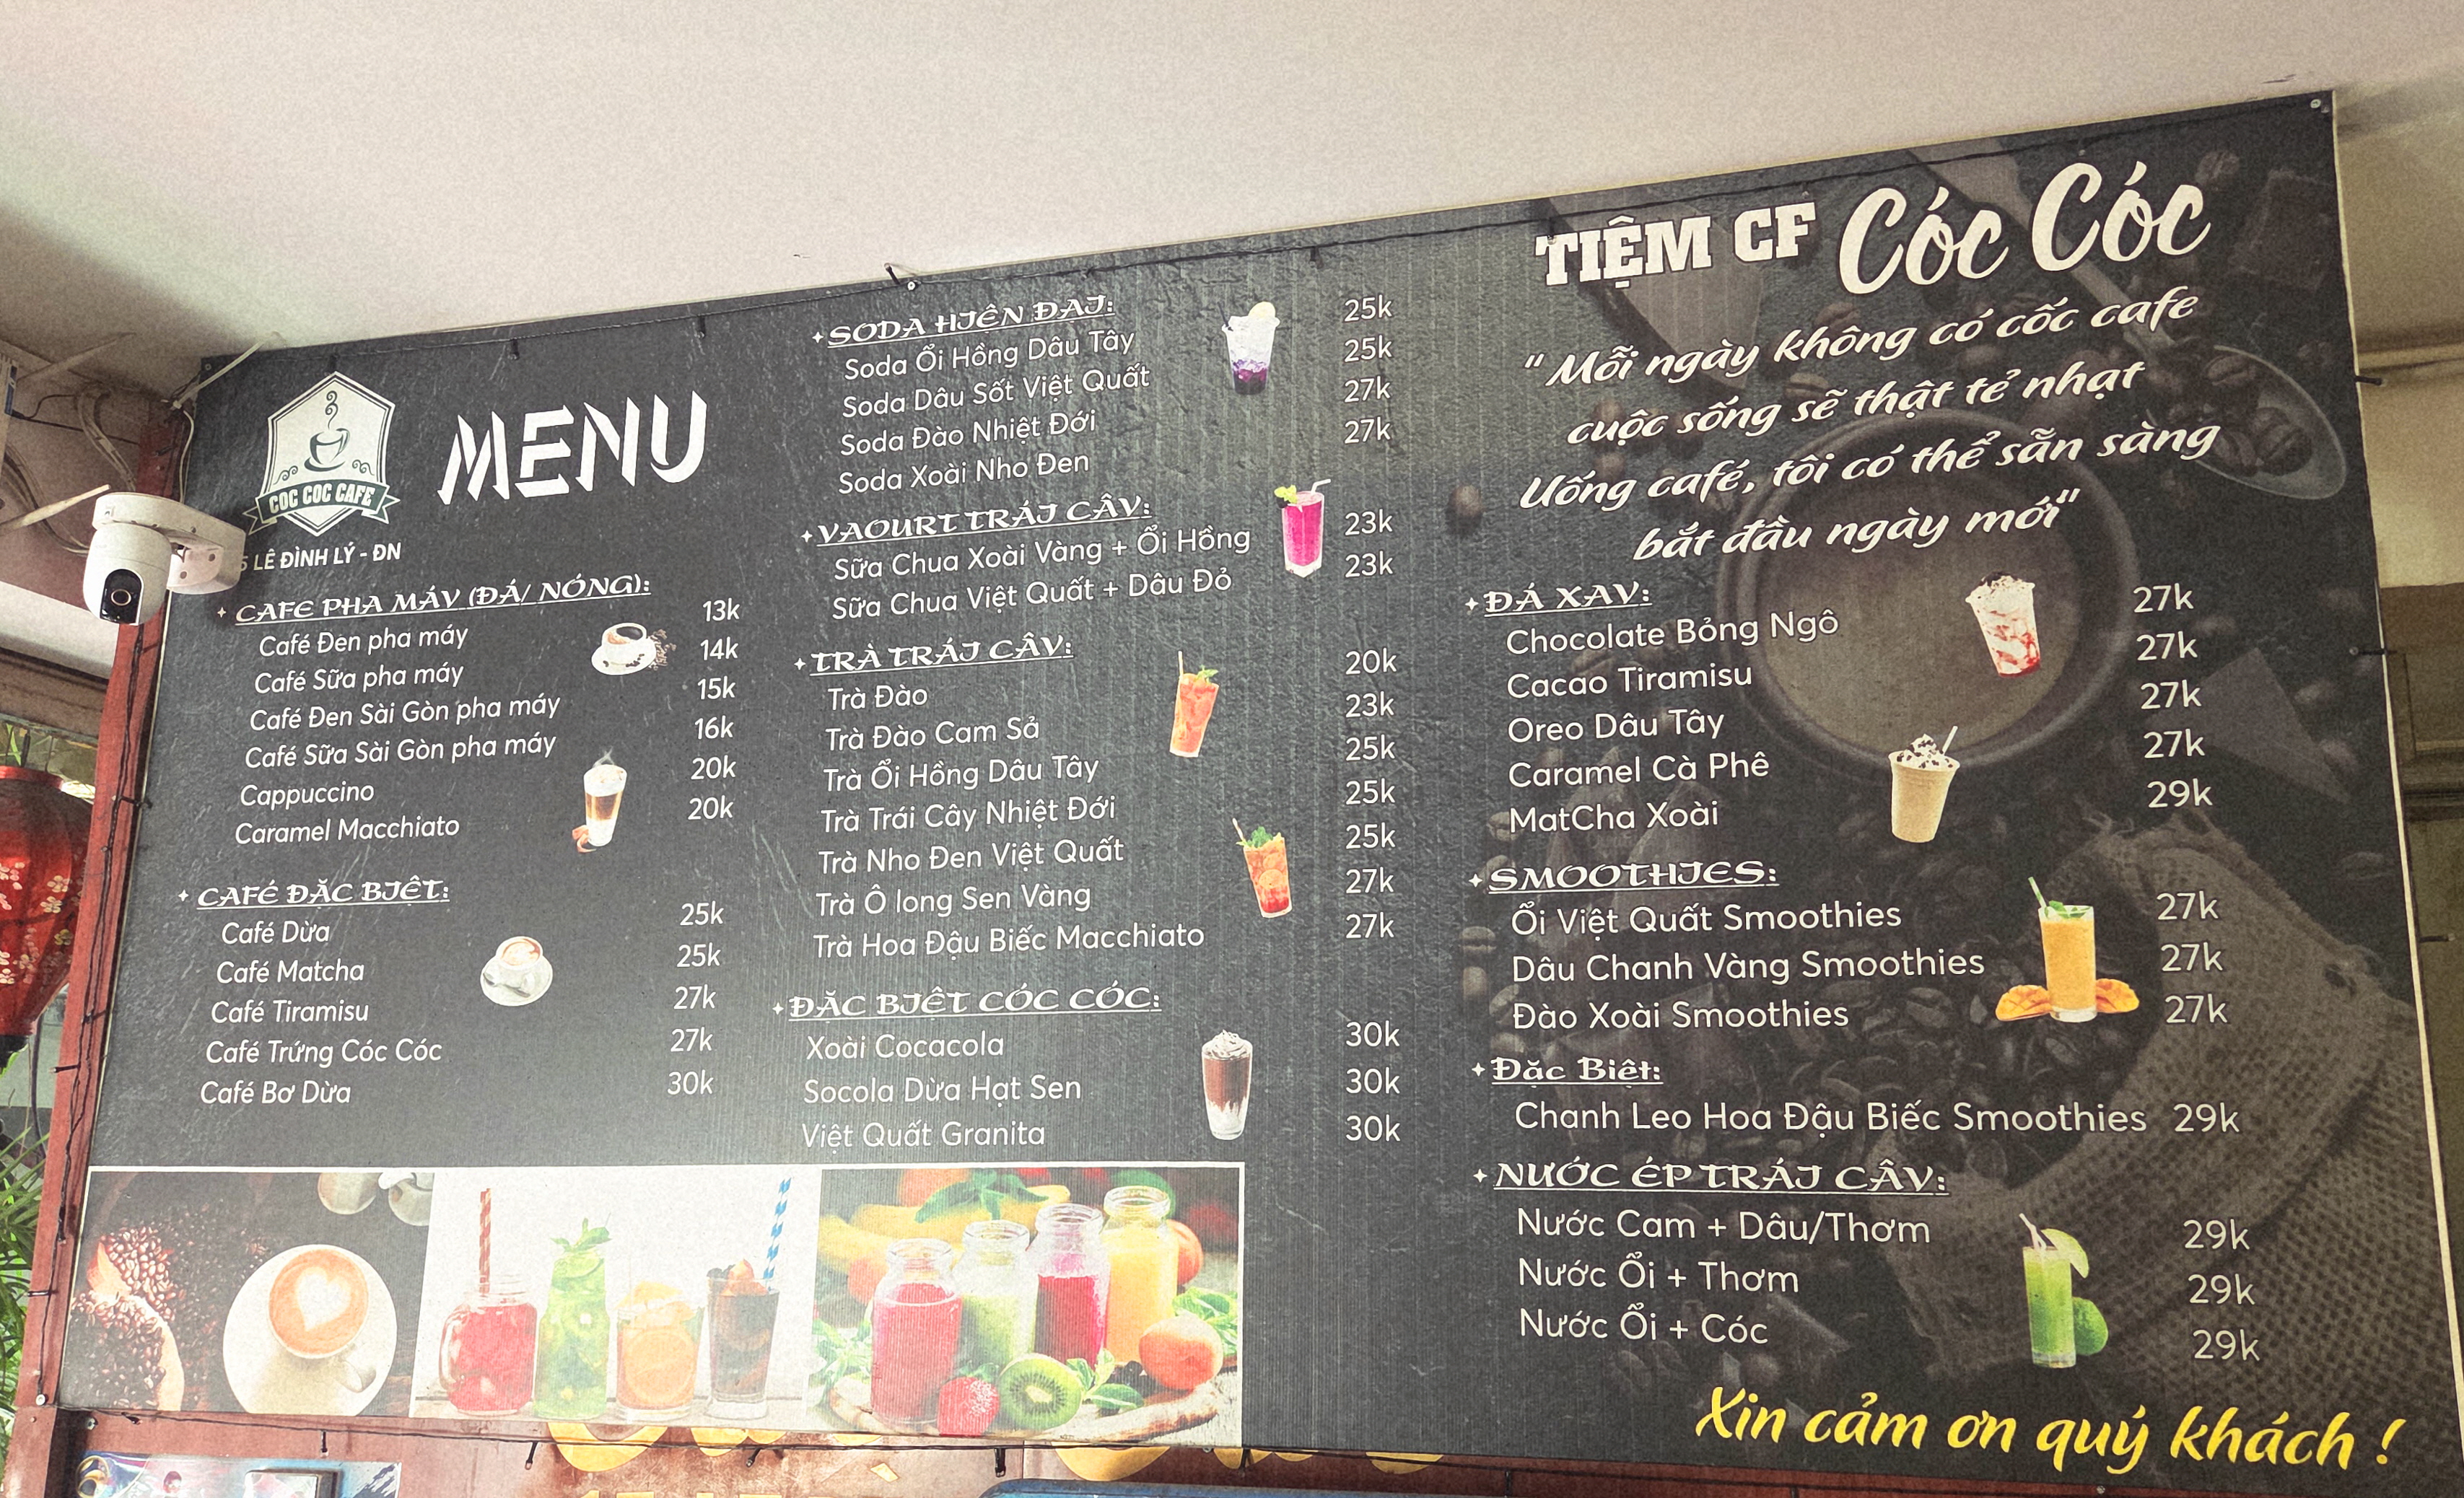 COC COC CAFE
LÊ ĐÌNH LÝ - ĐN
MENU
CAFE PHA MÁY (ĐÁ/ NÓNG):
Café Đen pha máy 13k
Café Sữa pha máy 14k
Café Đen Sài Gòn pha máy 15k
Café Sữa Sài Gòn pha máy 16k
Cappuccino 20k
Caramel Macchiato 20k
CAFÉ ĐẶC BIỆT:
Café Dừa 25k
Café Matcha 25k
Café Tiramisu 27k
Café Trứng Cóc Cóc 27k
Café Bơ Dừa 30k
SODA HIÊN ĐAI:
Soda Ổi Hồng Dâu Tây 25k
Soda Dâu Sốt Việt Quất 25k
Soda Đào Nhiệt Đới 27k
Soda Xoài Nho Đen 27k
YAOURT TRÁI CÂY:
Sữa Chua Xoài Vàng + Ổi Hồng 23k
Sữa Chua Việt Quất + Dâu Đỏ 23k
TRÀ TRÁI CÂY:
Trà Đào 20k
Trà Đào Cam Sả 23k
Trà Ổi Hồng Dâu Tây 25k
Trà Trái Cây Nhiệt Đới 25k
Trà Nho Đen Việt Quất 25k
Trà Ô long Sen Vàng 27k
Trà Hoa Đậu Biếc Macchiato 27k
ĐẶC BIỆT CÓC CÓC:
Xoài Cocacola 30k
Socola Dừa Hạt Sen 30k
Việt Quất Granita 30k
TIỆM CF Cóc Cóc
"Mỗi ngày không có cốc cafe
cuộc sống sẽ thật tẻ nhạt
Uống café, tôi có thể sẵn sàng
bắt đầu ngày mới"
ĐÁ XAY:
Chocolate Bỏng Ngô 27k
Cacao Tiramisu 27k
Oreo Dâu Tây 27k
Caramel Cà Phê 27k
MatCha Xoài 29k
SMOOTHIES:
Ổi Việt Quất Smoothies 27k
Dâu Chanh Vàng Smoothies 27k
Đào Xoài Smoothies 27k
Đặc Biệt:
Chanh Leo Hoa Đậu Biếc Smoothies 29k
NƯỚC ÉP TRÁI CÂY:
Nước Cam + Dâu/Thơm 29k
Nước Ổi + Thơm 29k
Nước Ổi + Cóc 29k
Xin cảm ơn quý khách !